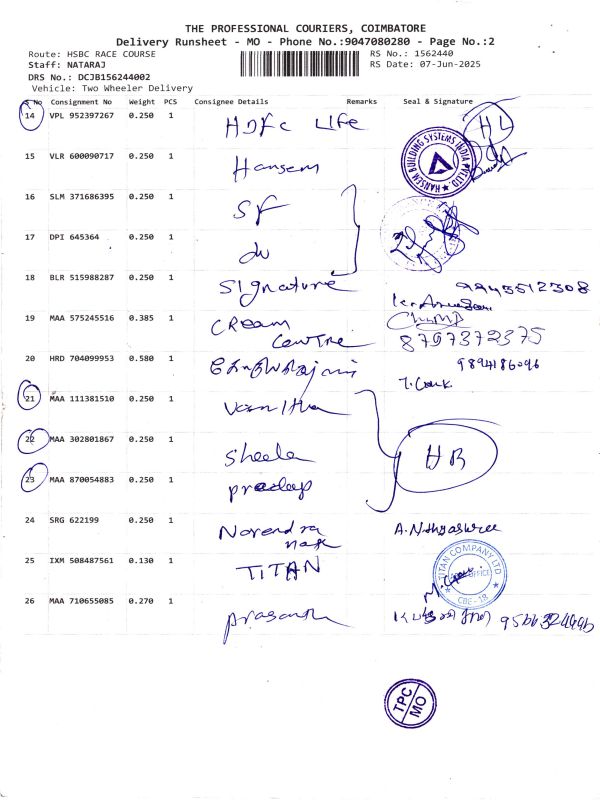 THE PROFESSIONAL COURIERS, COIMBATORE
Delivery Runsheet - MO - Phone No.:9047080280 - Page No.:2
Route: HSBC RACE COURSE
RS No.: 1562440
Staff: NATARAJ
RS Date: 07-Jun-2025
DRS No.: DCJB156244002
Vehicle: Two Wheeler Delivery
S No Consignment No Weight PCS Consignee Details Remarks Seal & Signature
14 VPL 952397267 0.250 1 HDFC LIFE HL
15 VLR 600090717 0.250 1 Hansem
HANSEM BUILDING SYSTEMS INDIA PVT.LTD.
16 SLM 371686395 0.250 1 SF
17 DPI 645364 0.250 1
18 BLR 515988287 0.250 1 Signature 9945512308
19 MAA 575245516 0.385 1 CREAM CENTRE 8797372375
20 HRD 704099953 0.580 1 9894186096
21 MAA 111381510 0.250 1
22 MAA 302801867 0.250 1 Sheela HB
23 MAA 870054883 0.250 1 pradeep
24 SRG 622199 0.250 1 Narendra A. Nithyashree
25 IXM 508487561 0.130 1 TITAN
TITAN COMPANY LTD
OFFICE
CBE - 18
26 MAA 710655085 0.270 1 prasanth
TPC
MO